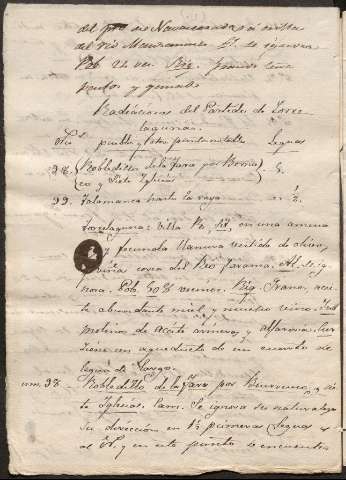 del pro sio Navacerrada a orillas
del rio Manzanares El. se ignora
Pob 24 vec. Riq.
pastos y ganado
Radiaciones del Partido de Torre
laguna.
pueblo y otro punto notable Leguas
38 Robledillo de la Jara por Berrue
co y Siete Iglesias 5.
39. Talamanca hasta la raya 2.
Torrelaguna: Villa Re. Sit. en una amena
y fecunda llanura vestida de olivos,
viña cerca del Rio Jarama. Al. se ig
nora. Pob. 508 vecinos. Riq. Granos, acei
te abundante miel y mucho vino. Ind.
molino de Aceite arinero, y alfareria. Cur
tiene un aqueducto de un cuarto de
legua de largo.
num. 38 Robledillo de la Jara por Berrueco, y Sie
te Iglesias. Cam. Se ignora su naturaleza
Su direccion en 1½ primeras leguas es
al N, y en este punto se encuentra